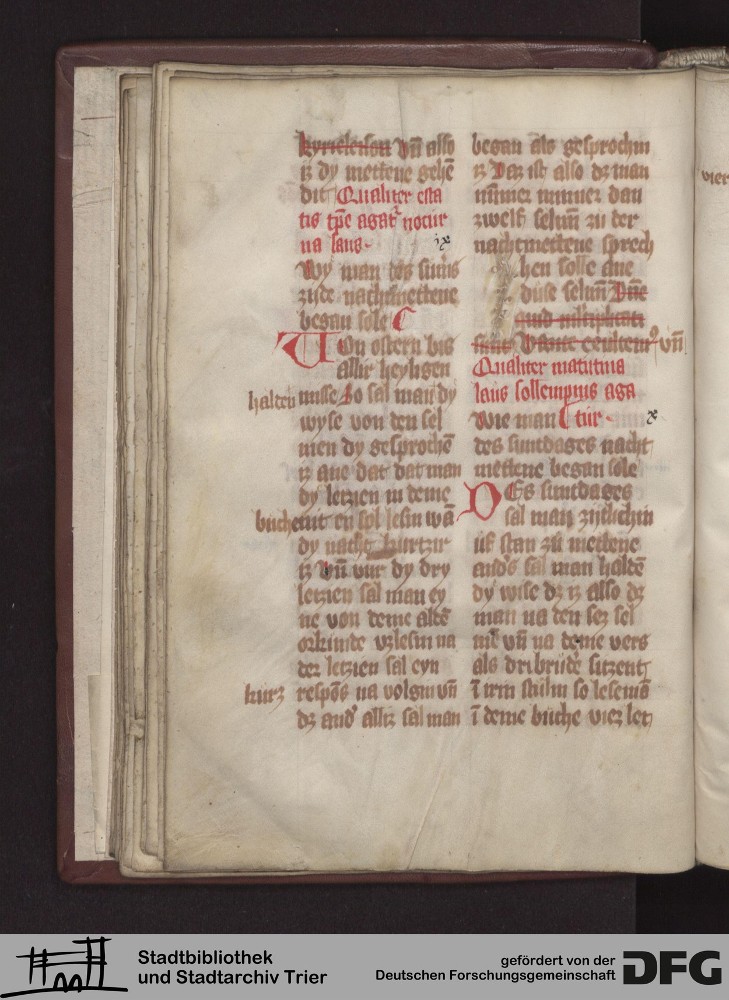 kyrieleison vn̄ also
iz dy mettene gehē
dit Qualiter esta
tis tp̄e agat᷑ noctur
na laus ·
ix
Wy man des sumʼs
zijde nachtmettene
began sole
Von ostern bis
allir heyligen
halten
misse So sal man dy
wyse von den sel
men dy gesprochē
iz ane dat dat man
dy letzien in deme
buche
nit en sol lesin wā
dy nacht kurtzir
iz Vn̄ vur dy dry
letzien sal man ey
ne von deme aldē
orkunde vzlesin na
der letzien sal eyn
kurz
respōs na volgin vn̄
dz andʼ alliz sal man
began als gesprochin
iz Daz ist also dz man
nūmer minner dan
zwelf selmn̄ zu der
nachtmettene sprech
hen solle ane
dise selmn̄ Dn̄e
quid mltiplicati
sunt Venite exultemʼ vn̄
Qualiter matutina
laus sollempnis aga
Wie man tur ·
x
des suntdages nacht
mettene began sole
DEs suntdages
sal man zijtlichin
uf stan zu mettene
andʼs sal man haldē
dy wise dz iz also dz
man na den sez sel
mē vn̄ na deme vers
als dri brudē sitzent
ī irm stulin so lese mā
ī deme buche vier let
vier
Stadtbibliothek
und Stadtarchiv Trier
gefördert von der
Deutschen Forschungsgemeinschaft
DFG